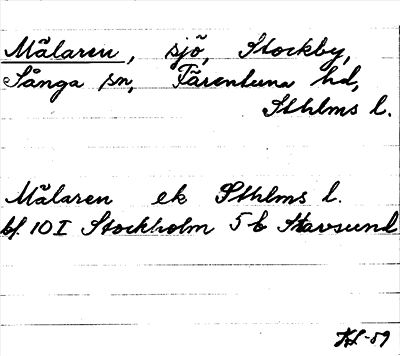 Mälaren, sjö, Stockby,
Sånga sn, Färentuna hd,
Sthlms l.
Mälaren ek Sthlms l.
bl. 10 I Stockholm 5 b Stavsund